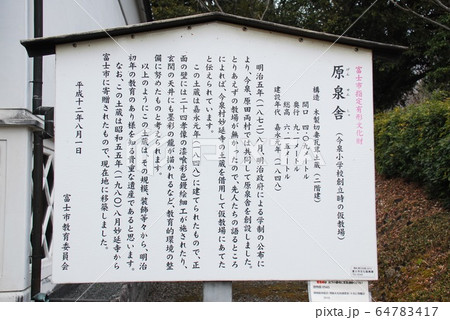 富士市指定有形文化財
原泉舎（今泉小学校創立時の仮教場）
構造 木製切妻瓦葺土蔵（二階建）
間口 四・〇九メートル
奥行 九・一八メートル
総高 六・一五メートル
建設年代 嘉永元年（一八四八）
明治五年（一八七二）八月、明治政府による学制の公布に
より、今泉、原田両村では共同して原泉舎を創設しました。
とりあえずの教場が無かったので、先人たちの語るところ
によれば、今泉村妙延寺の土蔵を借用して仮教場にあてた
と伝えられています。
この土蔵は嘉永元年（一八四八）に建てられたもので、正
面の壁には二十四孝像の漆喰彩色鏝絵細工が施されたり、
玄関の天井にも墨彩の龍が描かれるなど、教育的環境の整
備に努めたものと考えられます。
以上のようにこの土蔵は、その規模、装飾等々から、明治
初年の教育のあり様を知る貴重な遺産であると思います。
なお、この土蔵は昭和五五年（一九八〇）八月妙延寺から
富士市に寄贈されたもので、現在地に移築しました。
平成十二年八月一日
富士市教育委員会
64783417